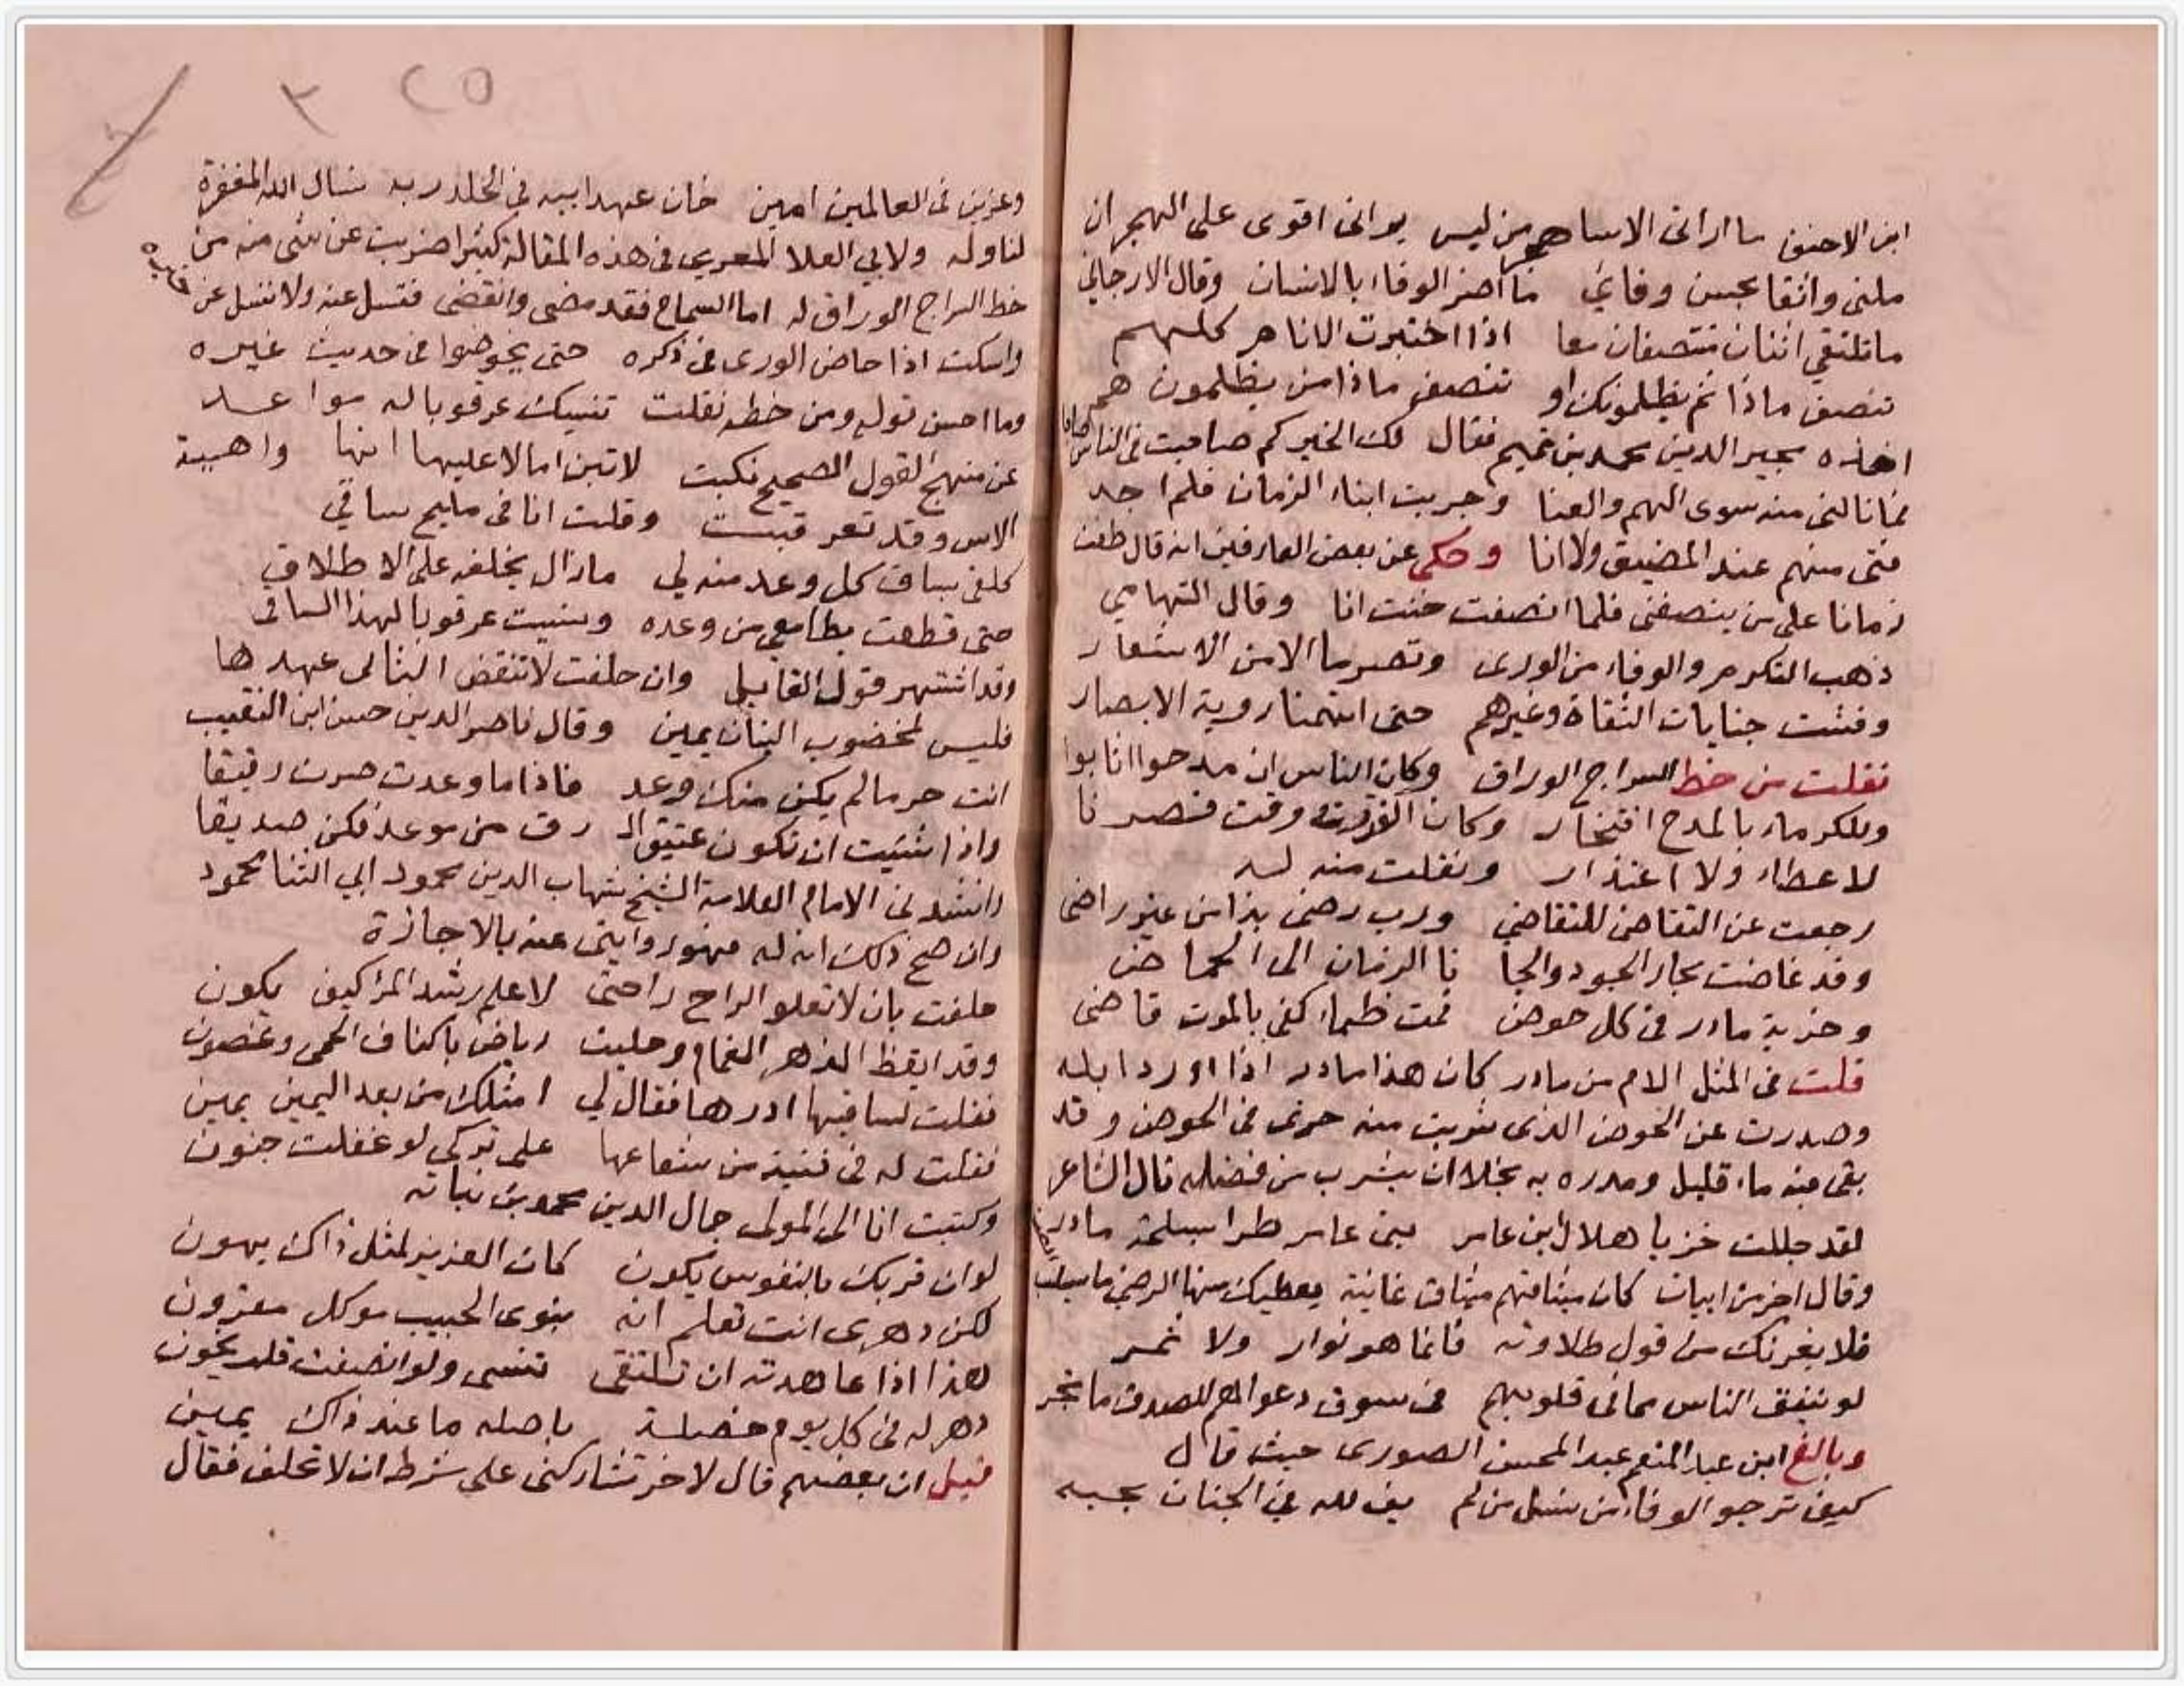 ابن الاحنف ما اراني الا ساهجر من ليس يراني اقوى على الهجران
ملني واثقا بحسن وفائي ما اضر الوفاء بالانسان وقال الارجاني
ما تلتقي اثنان منتصفان معا اذا اختبرت الانام كلهم
تنصف ماذا ثم يظلمونك او تنصف ماذا من يظلمون هم
اخذه مجير الدين محمد بن تميم فقال لك الخير كم صاحبت في الناس صاحبا
فما نالني منه سوى الهم والعنا وجربت ابناء الزمان فلم اجد
فتى منهم عند المضيق ولا انا وحكى عن بعض العارفين انه قال طفت
زمانا على من ينصفني فلما انصفت خنت انا وقال التهامي
ذهب التكرم والوفاء من الورى وتصرما الا من الاشعار
وفشت جنايات الثقاة وغيرهم حتى اتهمنا روية الابصار
نقلت من خط السراج الوراق وكان الناس ان مدحوا اثابوا
وللكرماء بالمدح افتخار وكان العذر في وقت فصرنا
لا عطاء ولا اعتذار ونقلت منه له
رجعت عن التقاضي للتقاضي ورب رضى بذا من غير راضى
وقد غاضت بحار الجود والجا نا الزمان الى الحياض
وخزية مادر في كل حوض فمت ظماء كفى بالموت قاضى
قلت في المثل الام من مادر كان هذا مادر اذا اورد ابله
وصدرت عن الحوض الذى شربت منه خرى في الحوض وقد
بقى فيه ماء قليل ومدره به بخلا ان يشرب من فضله قال الشاعر
لقد جللت خزيا هلال ابن عامر بنى عامر طرا بسلحة مادر
وقال اخر من ابيات كان ميثاقهم ميثاق غانية يعطيك منها الرضى ما يسلب
فلا يغرنك من قول طلاوته فانما هو نوار ولا ثمر
لو ينفق الناس مما في قلوبهم في سوق دعواهم للصدق ما تجر
وبالغ ابن عبد المنعم عبد المحسن الصورى حيث قال
كيف ترجو الوفاء من نسل من لم يف لله في الجنان بحبه
٢٥ ٣
وعزيز في العالمين امين خان عهد ابيه في الخلد ربه نسال الله المغفرة
لنا وله ولابي العلا المعري في هذه المقالة كثير اضربت عن شى منه من
خط السراج الوراق له اما السماح فقد مضى وانقضى فتسل عنه ولا تسل عن
واسكت اذا خاض الورى في ذكره حتى يخوضوا في حديث غيره
وما احسن قوله ومن خطه نقلت تنبيك عرقوبا له مواعد
عن منهج القول الصحيح نكبت لا تبن امالا عليها انها واهية
الاس وقد تعرقبت وقلت انا في مليح ساقي
كلفى بساق كل وعد منه لي مازال يخلفه على الاطلاق
حتى قطعت مطامعي من وعده ونسيت عرقوبا لهذا الساقى
وقد اشتهر قول القايل وان حلفت لا تنقض الناى عهدها
فليس لمخضوب البنان يمين وقال ناصر الدين حسن ابن النقيب
انت حر ما لم يكن منك وعد فاذا ما وعدت صرت رقيقا
واذا شئت ان تكون عتيق الـ رق من موعد فكن صديقا
وانشدني الامام العلامة الشيخ شهاب الدين محمود ابي الثنا محمود
وان صح ذلك انه له فهو روايتى عنه بالاجازة
حلفت بان لا تعلو الراح راحتى لاعلم رشد المرا كيف يكون
وقد ايقظ الزهر الغمام وحليت رياض باكناف الحمى وغصون
فقلت لساقيها ادرها فقال لي امثلك من بعد اليمين يمين
فقلت له في فتية من شعاعها على تركى لو غفلت جنون
وكتبت انا الى المولى جمال الدين محمد بن نباته
لو ان قربك بالنفوس يكون كان العزيز لمثل ذاك يهون
لكن دهرى انت تعلم انه بنوى الحبيب موكل مقرون
هذا اذا عاهدته ان نلتقى تنسى ولو انصفت قلت يخون
دهر له في كل يوم خصلة باصله ما عند ذاك يمين
قيل ان بعضهم قال لاخر تشاركنى على شرط ان لا تحلف فقال